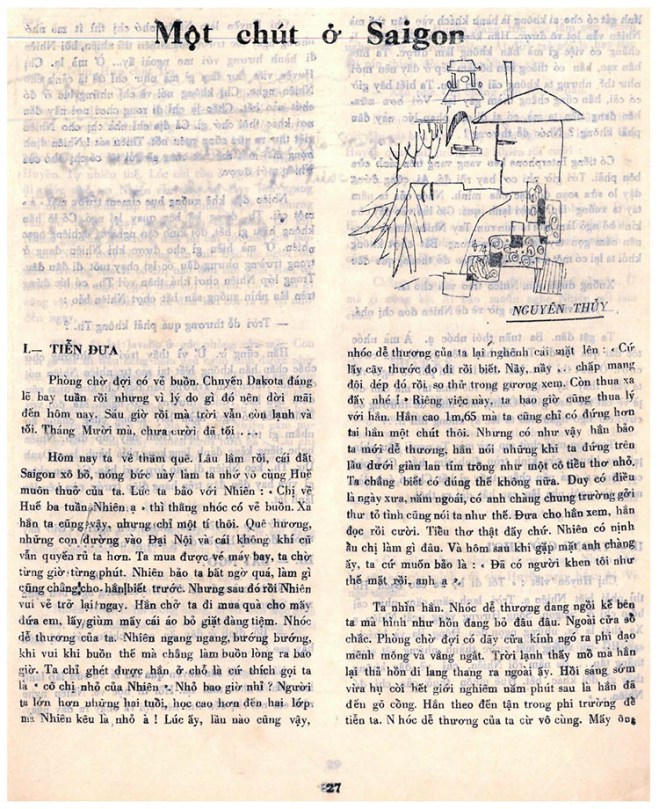 Một chút ở Saigon
NGUYÊN THỦY
I.— TIỄN ĐƯA
Phòng chờ đợi có vẻ buồn. Chuyến Dakota đáng
lẽ bay tuần rồi nhưng vì lý do gì đó nên dời mãi
đến hôm nay. Sáu giờ rồi mà trời vẫn còn lạnh và
tối. Tháng Mười mà, chưa cười đã tối ...
Hôm nay ta về thăm quê. Lâu lắm rồi, cái đất
Saigon xô bồ, nóng bức này làm ta nhớ vô cùng Huế
muôn thuở của ta. Lúc ta bảo với Nhiên : « Chị về
Huế ba tuần Nhiên ạ » thì thằng nhóc có vẻ buồn. Xa
hắn ta cũng vậy, nhưng chỉ một tí thôi. Quê hương,
những con đường vào Đại Nội và cái không khí cũ
vẫn quyến rũ ta hơn. Ta mua được vé máy bay, ta chờ
từng giờ từng phút. Nhiên bảo ta bất ngờ quá, làm gì
cũng chẳng cho hắn biết trước. Nhưng sau đó rồi Nhiên
vui vẻ trở lại ngay. Hắn chở ta đi mua quà cho mấy
đứa em, lấy giùm mấy cái áo bỏ giặt đàng tiệm. Nhóc
dễ thương của ta. Nhiên ngang ngang, bướng bướng,
khi vui khi buồn thế mà chẳng làm buồn lòng ra bao
giờ. Ta chỉ ghét được hắn ở chỗ là cứ thích gọi ta
là « cô chị nhỏ của Nhiên ». Nhỏ bao giờ nhỉ ? Người
ta lớn hơn những hai tuổi, học cao hơn đến hai lớp
mà Nhiên kêu là nhỏ à ! Lúc ấy, lần nào cũng vậy,
nhóc dễ thương của ta lại nghênh cái mặt lên : « Cứ
lấy cây thước đo đi rồi biết. Nầy, nầy ... chấp mang
đôi dép đó rồi so thử trong gương xem. Còn thua xa
đấy nhé ! » Riêng việc này, ta bao giờ cũng thua lý
với hắn. Hắn cao 1m,65 mà ta cũng chỉ có đứng hơn
tai hắn một chút thôi. Nhưng có như vậy hắn bảo
ta mới dễ thương, hắn nói những khi ta đứng trên
lầu dưới giàn lan tím trông như một cô tiểu thơ nhỏ.
Ta chẳng biết có đúng thế không nữa. Duy có điều
là ngày xưa, năm ngoái, có anh chàng chung trường gởi
thư tỏ tình cũng nói ta như thế. Đưa cho hắn xem, hắn
đọc rồi cười. Tiểu thơ thật đấy chứ. Nhiên có nịnh
ầu chị làm gì đâu. Và hôm sau khi gặp mặt anh chàng
ấy, ta cứ muốn bảo là : « Đã có người khen tôi như
thế mất rồi, anh ạ ».
Ta nhìn hắn. Nhóc dễ thương đang ngồi kế bên
ta mà hình như hồn đang bỏ đâu đâu. Ngoài cửa sổ
chắc. Phòng chờ đợi có dãy cửa kính ngó ra phi đạo
mênh mông và vắng ngắt. Trời lạnh thấy mồ mà hắn
lại thả hồn đi lang thang ra ngoài ấy. Hồi sáng sớm
vừa hụ còi hết giới nghiêm năm phút sau là hắn đã
đến gõ cổng. Hắn theo đến tận trong phi trường để
tiễn ta. Nhóc dễ thương của ta cừ vô cùng. Mấy ông
27